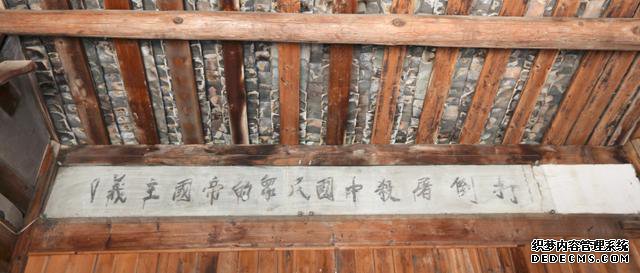 打倒屠殺中國民眾的帝國主義！
织梦内容管理系统
DEDECMS.COM